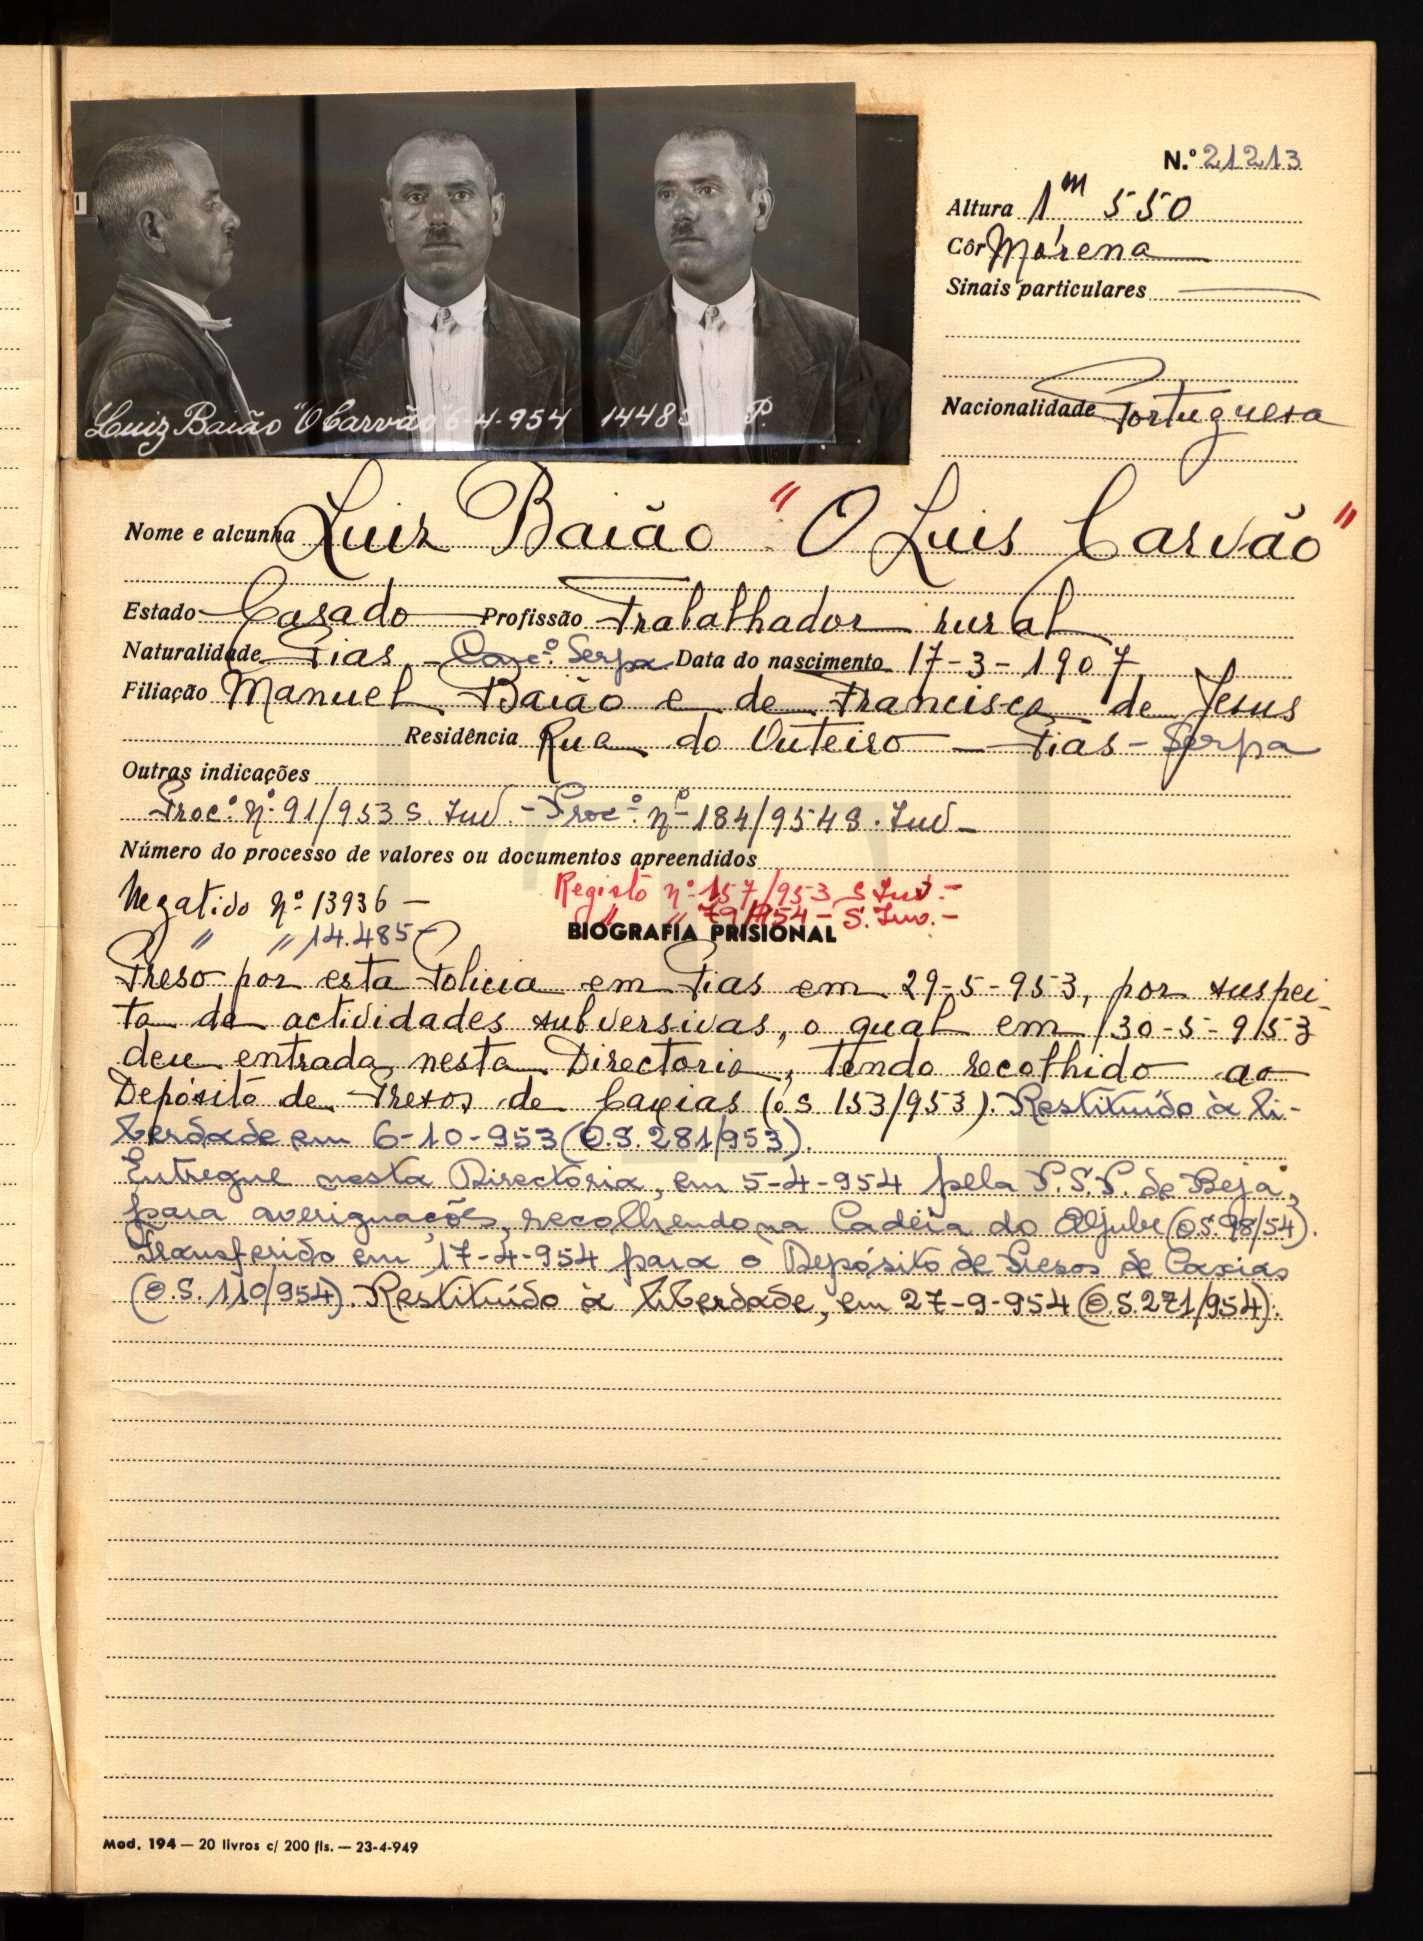 N.º 21213
Altura 1m 550
Côr Morena
Sinais particulares
Nacionalidade Portuguesa
Luiz Baião "O Carvão" 6-4-954 1448 P.
Nome e alcunha Luiz Baião "O Luis Carvão"
Estado Casado Profissão Trabalhador rural
Naturalidade Pias - Conc.º Serpa Data do nascimento 17-3-1907
Filiação Manuel Baião e de Francisca de Jesus
Residência Rua do Outeiro - Pias - Serpa
Outras indicações
Proc.º n.º 91/953 S. Inv. - Proc.º nº 184/954 S. Inv -
Número do processo de valores ou documentos apreendidos
Negativo nº 13936 - Registo nº 157/953 S Inv. -
" " 14.485 - " " 79/954 - S. Inv. -
BIOGRAFIA PRISIONAL
Preso por esta Policia em Pias em 29-5-953, por suspei-
ta de actividades subversivas, o qual em 30-5-953
deu entrada nesta Directoria, tendo recolhido ao
Depósito de Presos de Caxias (ó s 153/953). Restituído à li-
berdade em 6-10-953 (O.S. 281/953).
Entregue nesta Directoria, em 5-4-954 pela P.S.P. de Beja,
para averiguações, recolhendo na Cadeia do Aljube (O.S. 98/54).
Transferido em 17-4-954 para o Depósito de Presos de Caxias
(O.S. 110/954). Restituído à liberdade, em 27-9-954 (O.S. 271/954).
Mod. 194 — 20 livros c/ 200 fls. — 23-4-949